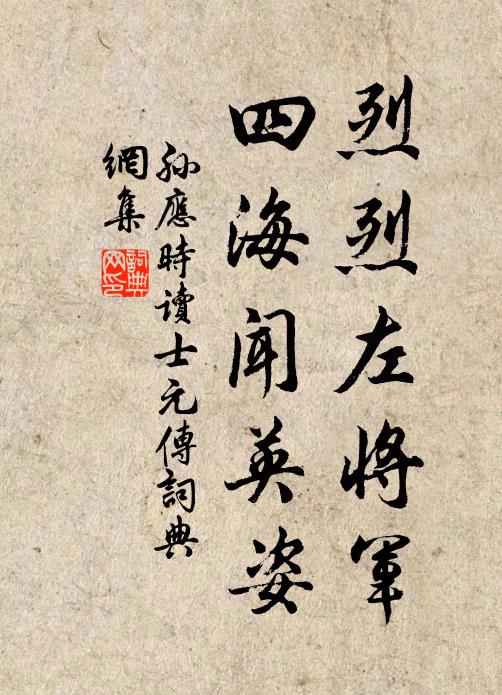 烈烈左將軍
四海聞英姿
孫應時讀士元傳詞典
網集
詞典
网印